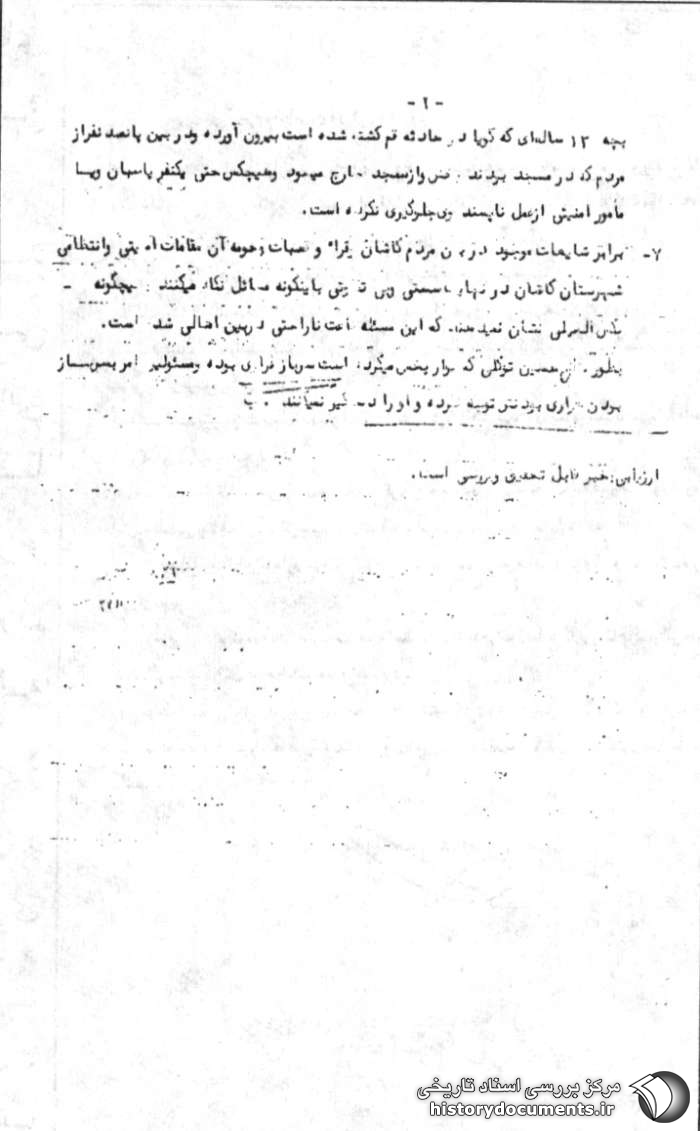 -۲-
بچه ۱۲ ساله‌ای که گویا در حادثه قم کشته شده است بیرون آورده ودر بین پانصد نفراز
مردم که در مسجد بودند وازمسجد خارج میشود وهیچکس حتی یکنفر پاسبان ویا
مأمور امنیتی ازعمل ناپسند وی جلوگیری نکرده است.
۷- برابر شایعات موجود در بین مردم کاشان و قراء و قصبات وحومه آن مقامات امنیتی وانتظامی
شهرستان کاشان در نهایت سستی وبی تفاوتی باینگونه مسائل نگاه میکنند و هیچگونه -
عکس العملی نشان نمیدهند که این مسئله باعث ناراحتی در بین اهالی شده است.
بطور حسین توکلی که نوار پخش میکرده است سرباز فراری بوده ومسئولین امر بسرباز
بودن فراری بودنش توجه نکرده و او را دستگیر نمیآنند
ارزیابی: خبر قابل تحقیق وبررسی است.
مرکز بررسی اسناد تاریخی
historydocuments.ir